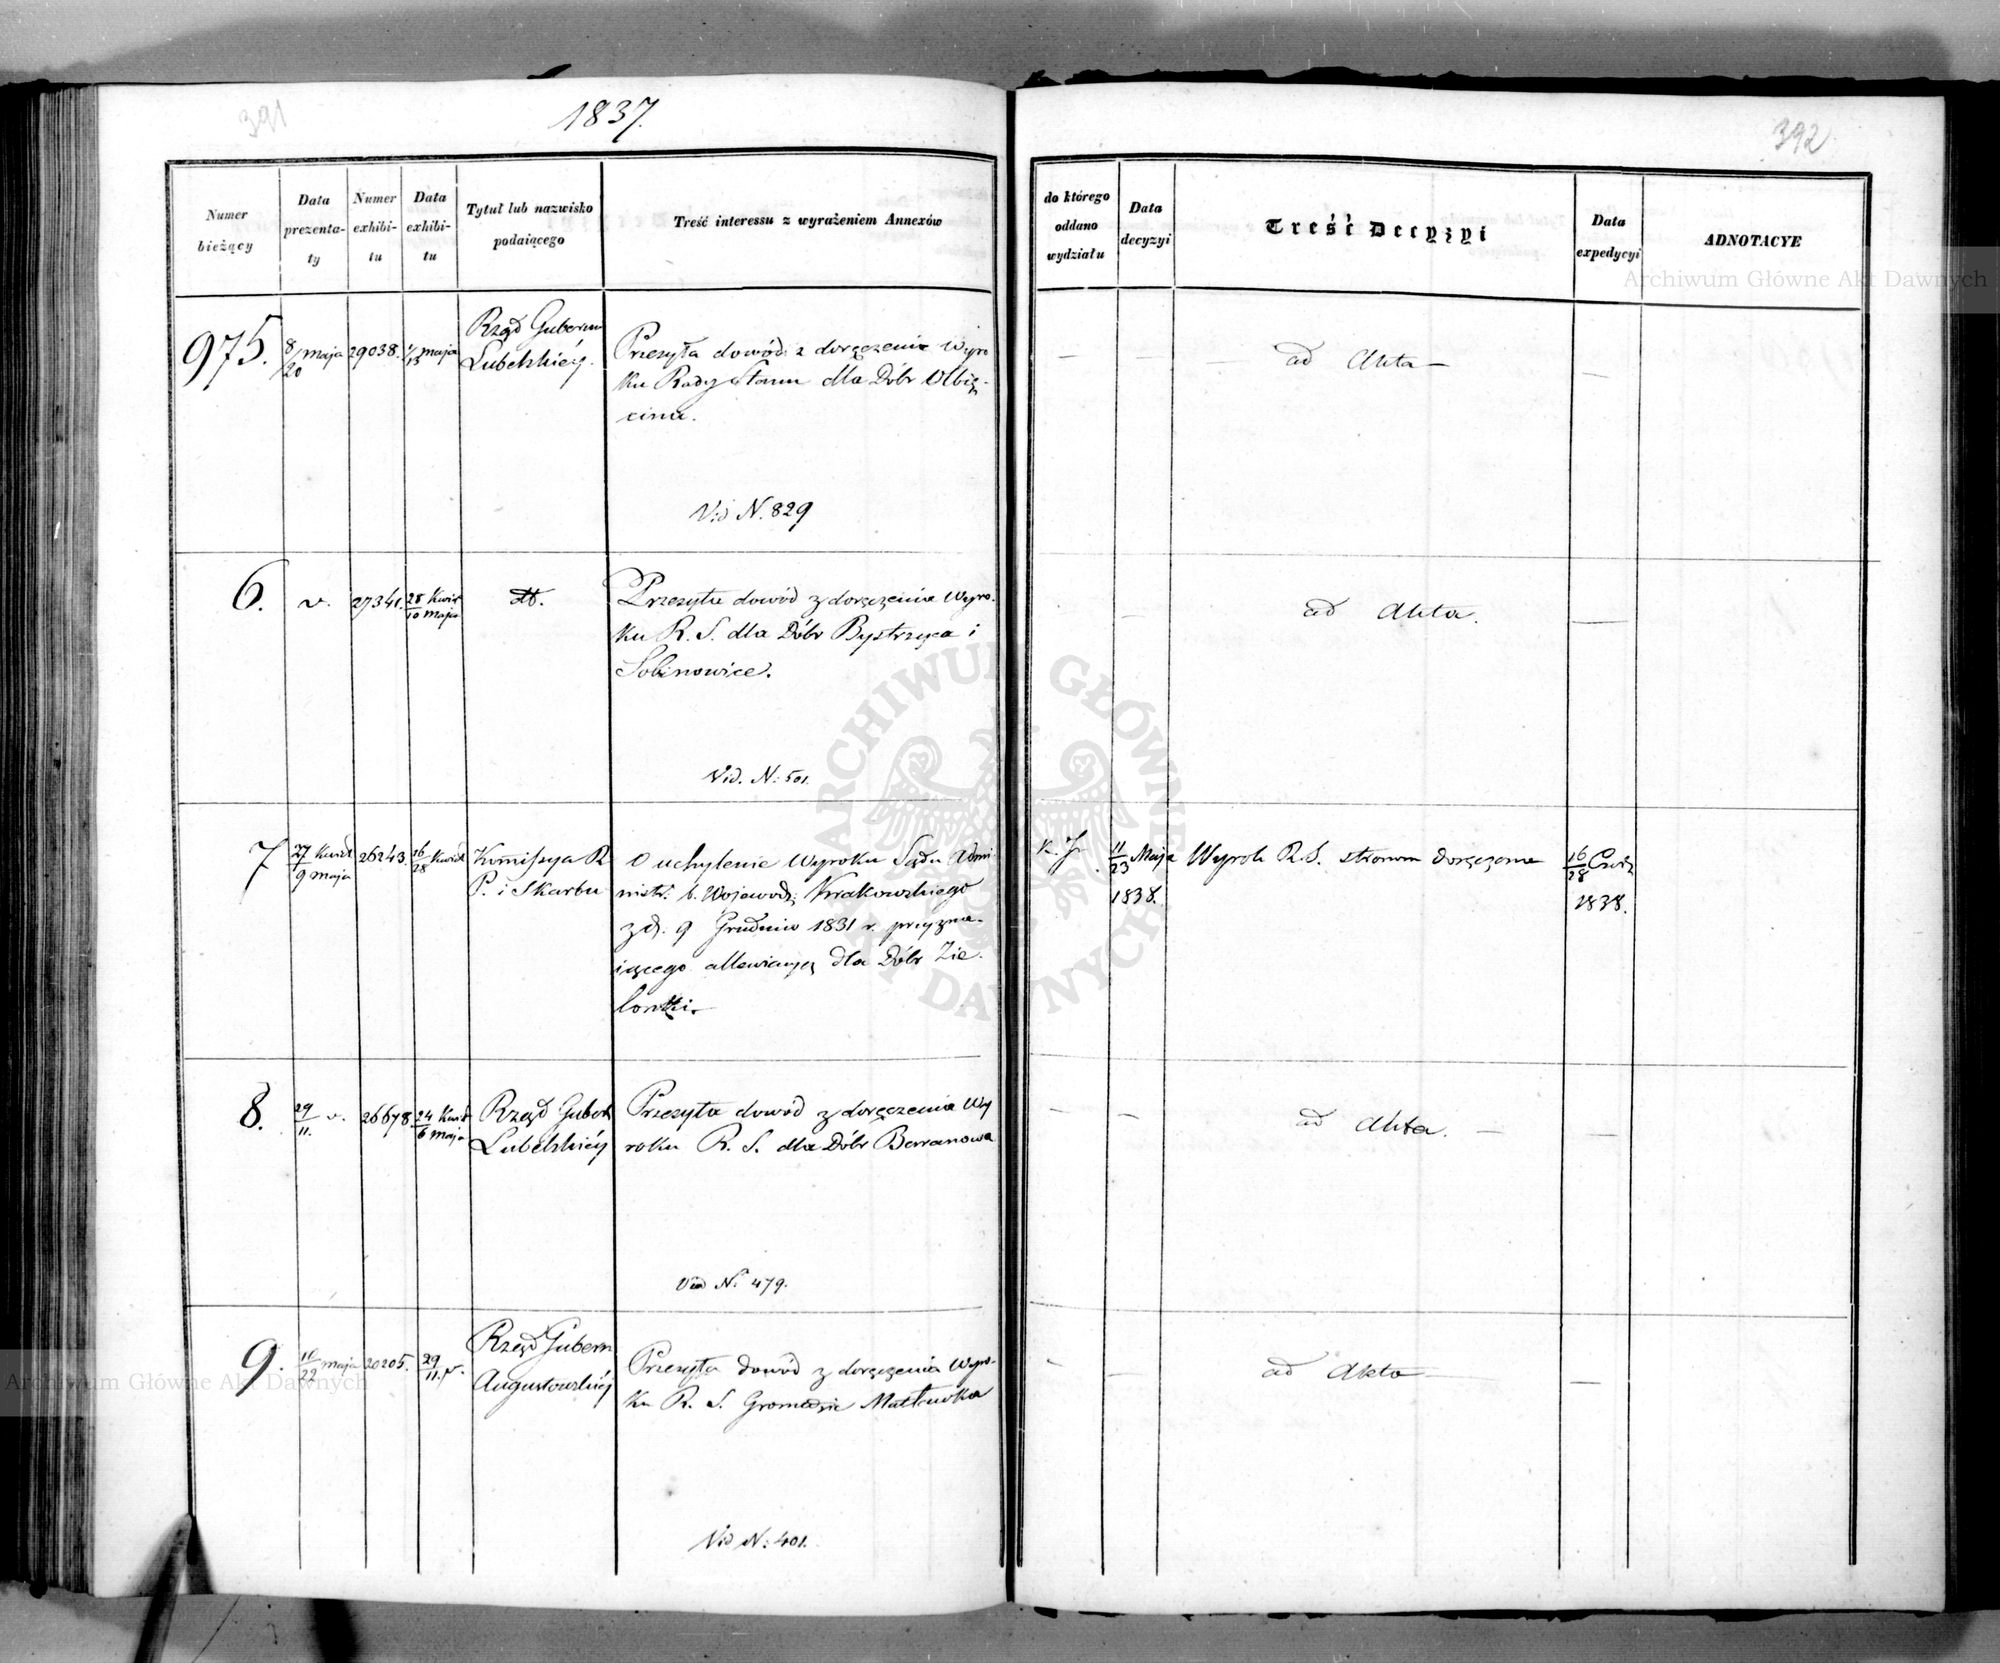 391
1837.
392
Numer bieżący
Data prezentaty
Numer exhibitu
Data exhibitu
Tytuł lub nazwisko podaiącego
Treść interessu z wyrażeniem Annexów
do którego oddano wydziału
Data decyzyi
Treść Decyzyi
Data expedycyi
ADNOTACYE
975. 8/20 maja 29038. 1/13 maja
Rząd Gubern
Lubelskiéy.
Przesyła dowód z doręczenia Wyro
ku Rady Stanu dla Dóbr Olbię-
cina.
Vid N. 829
— ad Akta — —
6. v. 27341. 28 Kwiet/10 maja dt.
Przesyła dowód z doręczenia Wyro-
ku R. S. dla Dóbr Bystrzyca i
Sobinowice.
Vid. N: 501.
— ad Akta. —
7 27 Kwiet/9 maja 26243. 16/28 Kwiet
Kommissya R
P. i Skarbu
O uchylenie Wyroku Sądu Admi-
nistr. b. Wojewodz: Krakowskiego
z d. 9 Grudnia 1831 r. przyzna-
iącego allewiacyą dla Dóbr Zie-
lonki.
11/23 Maja
1838.
Wyrok R. S. stronom doręczono
16/28 Czerw
1838.
8. 29/11. v. 26678 24 Kwiet/6 maja
Rząd Gubern
Lubelskiéy
Przesyła dowód z doręczenia Wy
roku R. S. dla Dóbr Baranowa
Vid N: 479.
— — ad Akta. — —
9. 10/22 maja 20205. 29/11. v.
Rząd Gubern
Augustowskiéy
Przesyła dowód z doręczenia Wyro-
ku R. S. Gromadzie Mazłówka
Vid N: 401.
— — ad Akta — —
Archiwum Główne Akt Dawnych
ARCHIWUM GŁÓWNE AKT DAWNYCH
Archiwum Główne Akt Dawnych